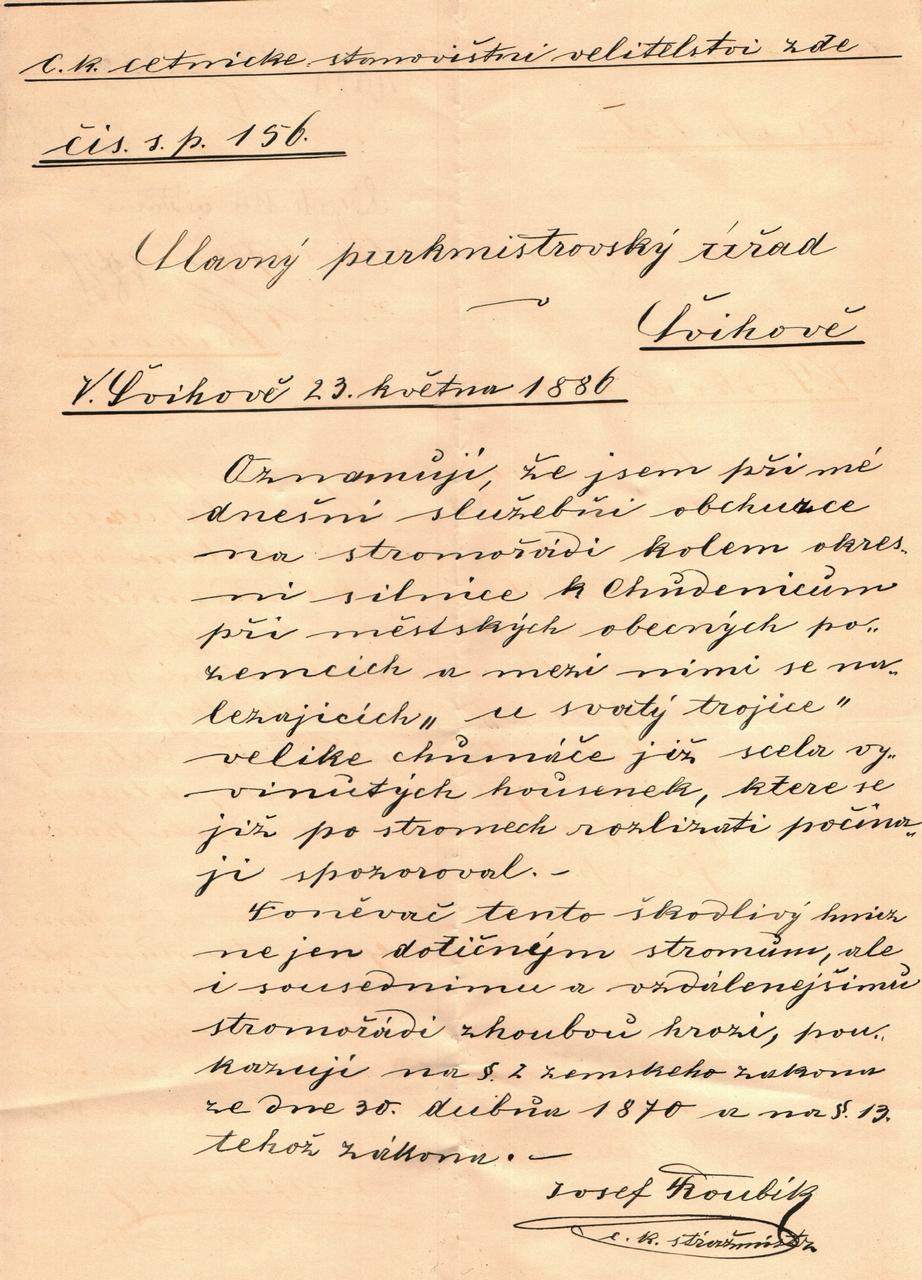 C. k. cetnicke stanovištni velitelstvi zde
čis. s. p. 156.
Slavný purkmistrovský úřad
Švihově
V. Švihově 23. května 1886
Oznamuji, že jsem při mé
dnešni služebňi obchuzce
na stromořádi kolem okres„
ni silnice k Chudenicum
při městských obecných po„
zemcich a mezi nimi se na„
lezajicich „ u svatý trojice "
velike chumáče již scela vy„
vinutých housenek, ktere se
již po stromech rozlizati počina„
ji spozoroval. —
Poněvač tento škodlivý hmiz
nejen dotičném stromům, ale
i sousednimu a vzdálenejšimu
stromořádi zhoubou hrozi, pou„
kazuji na §. 2 zemskeho zakona
ze dne 30. dubňa 1870 a na §. 13.
tehož zákona. —
Josef Koubik
c. k. stražmistr